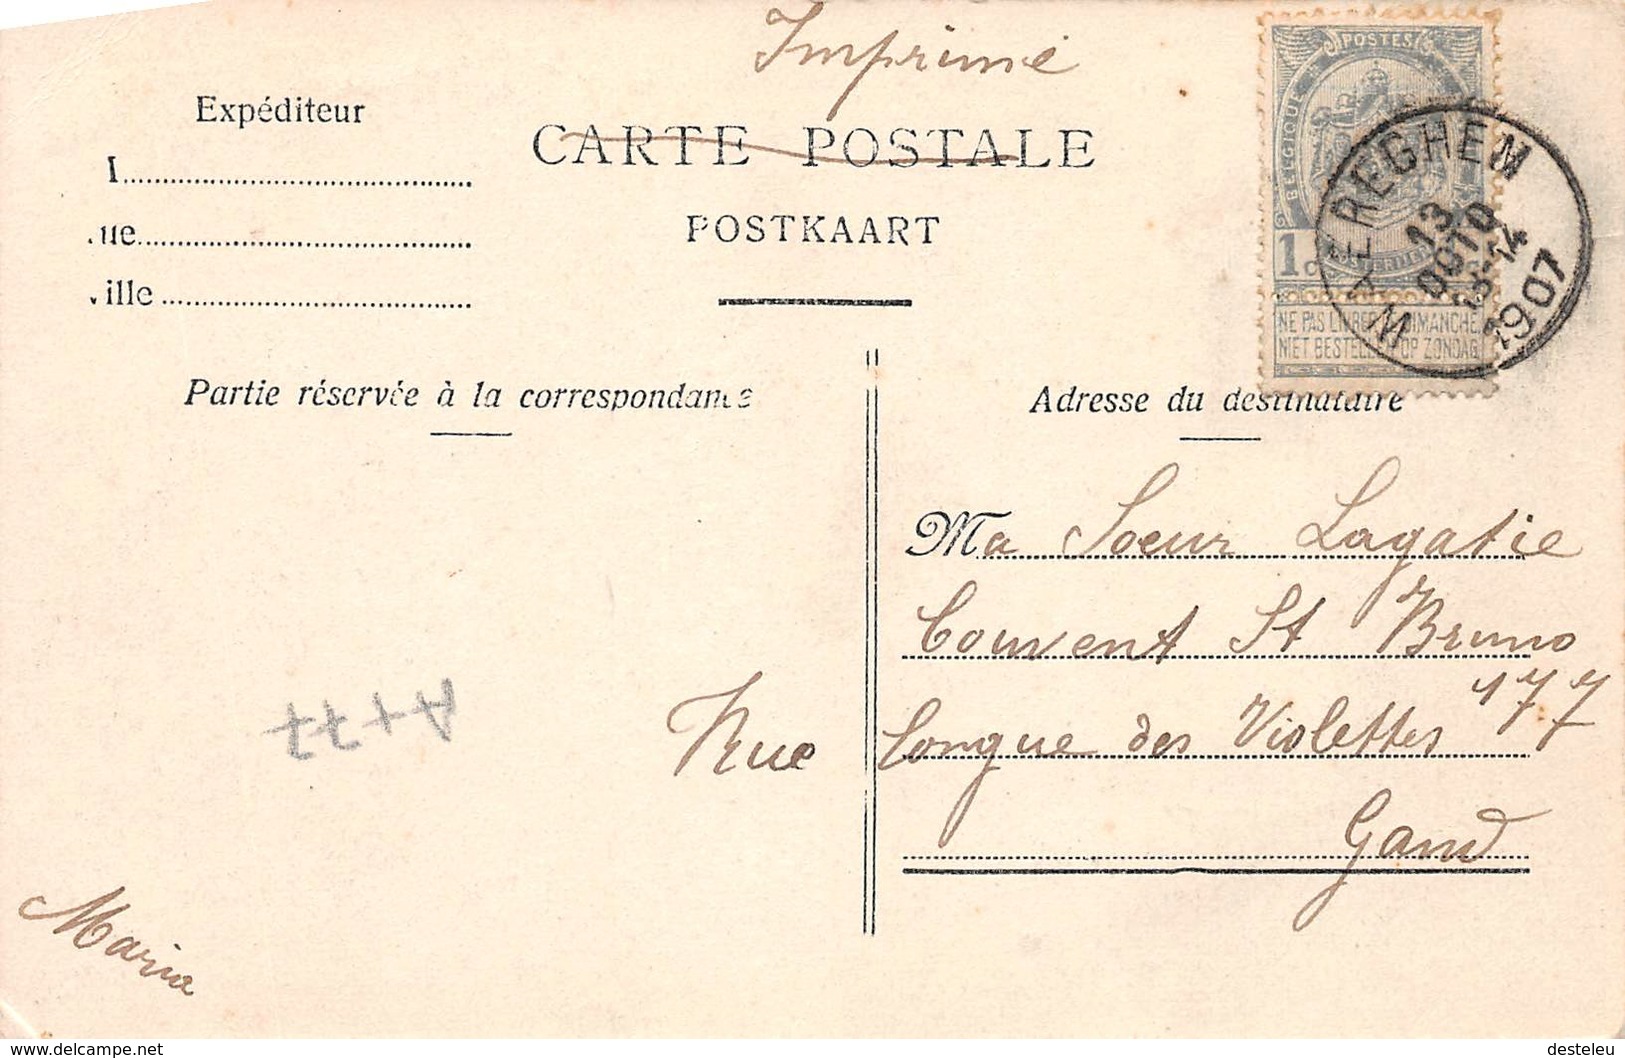 Imprimé
Expéditeur
CARTE POSTALE
POSTKAART
ue
ille
POSTES
BELGIQUE
1c
NE PAS LIVRER LE DIMANCHE
NIET BESTELLEN OP ZONDAG
MAEREGHEM
13
OCTO
13-14
1907
Partie réservée à la correspondance
Adresse du destinataire
Ma Soeur Lagatie
Couvent St Bruno
Rue longue des Violettes 177
Gand
A+77
Maria
www.delcampe.net
desteleu